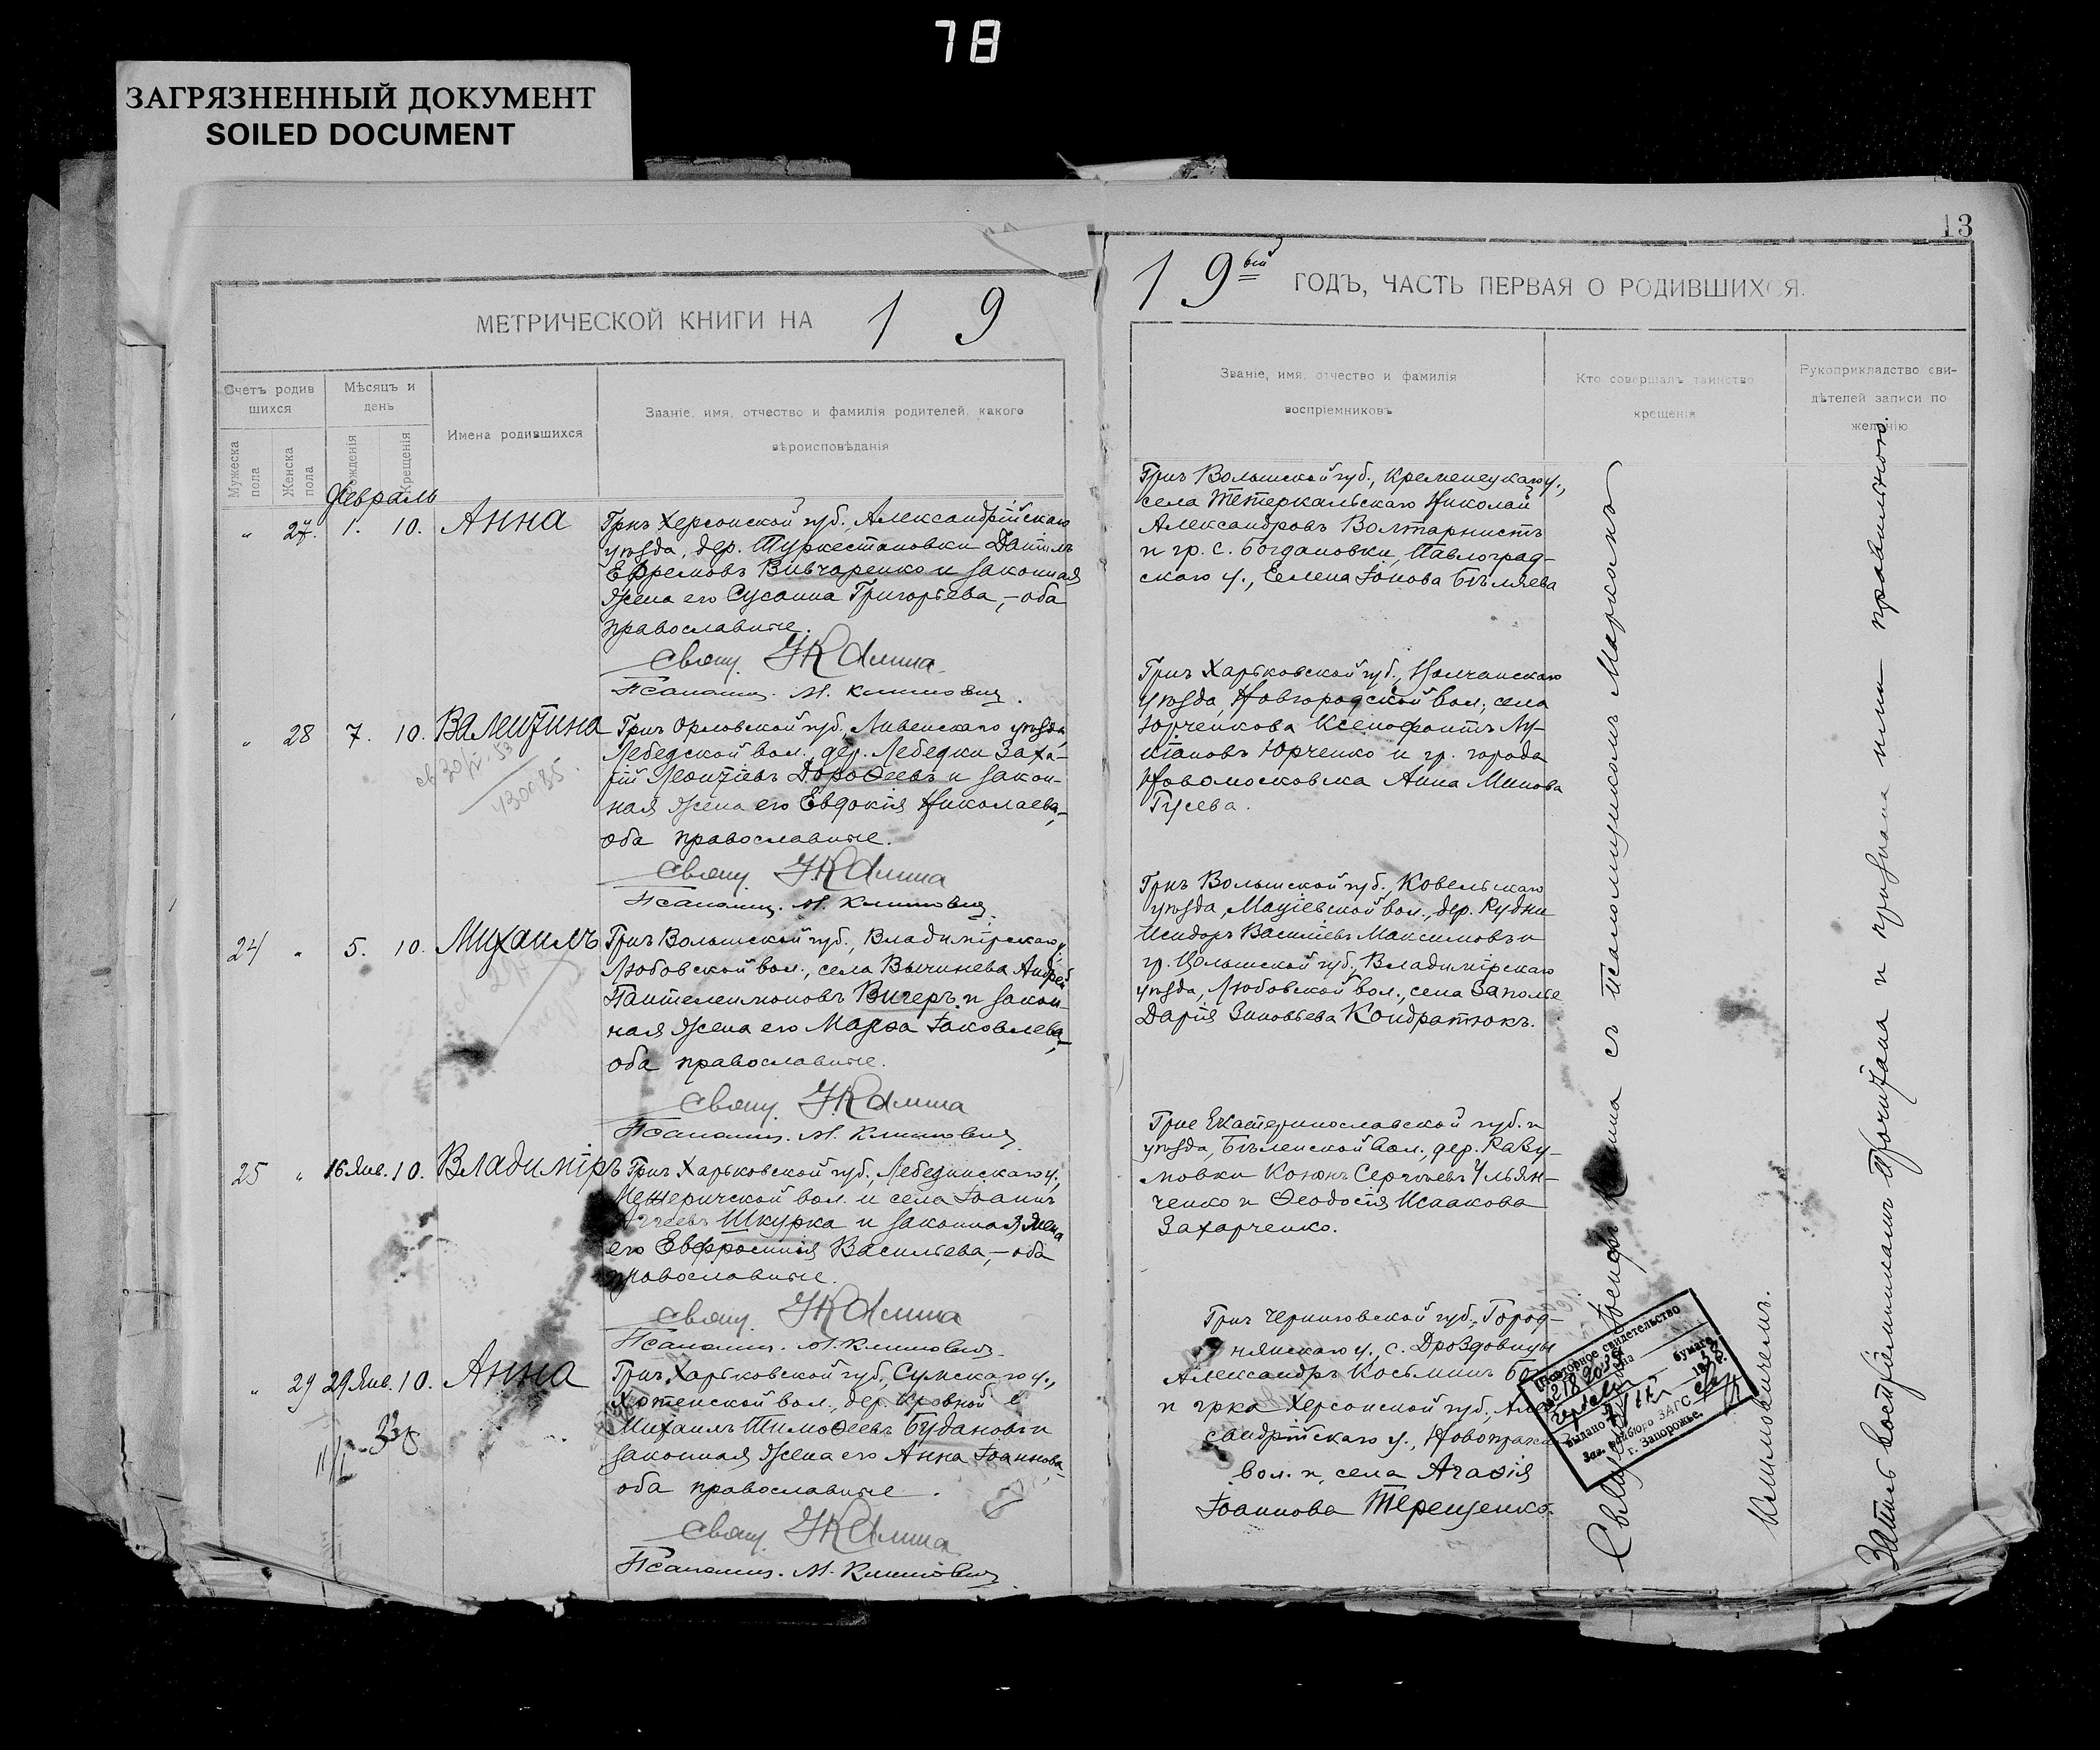 78
ЗАГРЯЗНЕННЫЙ ДОКУМЕНТ
SOILED DOCUMENT
МЕТРИЧЕСКОЙ КНИГИ НА 1 9
Счетъ родив
шихся
Мѣсяцъ и
день
Мужеска
пола
Женска
пола
Рожденія
Крещенія
Имена родившихся
Званіе, имя, отчество и фамилія родителей, какого
вѣроисповѣданія
Февраль
" 27. 1. 10. Анна
Грнъ Херсонской губ., Александрійскаго
уѣзда, дер. Туркестановки Даніилъ
Ефремовъ Вивчаренко и законная
жена его Сусанна Григорьева,-оба
православные.
Свящ.
Псаломщ. М. Климовичъ.
" 28 7. 10. Валентина
Грнъ Орловской губ, Ливенскаго уѣзда,
Лебедской вол., дер. Лебедки Заха-
рій Леонтіевъ Дороѳеевъ и закон-
ная жена его Евдокія Николаева,-
оба православные.
Свящ.
Псаломщ. М. Климовичъ.
24 " 5. 10. Михаилъ
Грнъ Волынской губ., Владимірскаго у.,
Любовской вол., села Вычинева Андрей
Пантелеимоновъ Вигеръ и закон-
ная жена его Марѳа Іаковлева,-
оба православные.
Свящ.
Псаломщ. М. Климовичъ
25 " 16 Янв. 10. Владиміръ
Грнъ Харьковской губ., Лебединскаго у.,
вол. и села Іоаннъ
Шкурка и законная жена
его Евфросинія Васильева,-оба
православные.
Свящ.
Псаломщ. М. Климовичъ.
" 29 29 Янв. 10. Анна
Грнъ Харьковской губ., Сумскаго у.,
Хотенской вол., дер. Кровной
Михаилъ Тимоѳеевъ Будановъ и
законная жена его Анна Іоаннова,
оба православные.
Свящ.
Псаломщ. М. Климовичъ.
13
1 9 ГОДЪ, ЧАСТЬ ПЕРВАЯ О РОДИВШИХСЯ.
Званіе, имя, отчество и фамилія
воспріемниковъ
Кто совершалъ таинство
крещенія
Рукоприкладство сви-
дѣтелей записи по
желанію
Грнъ Волынской губ., Кременецкаго у.,
села Николай
Александровъ Волтарнистъ
и гр. с. Богдановки, Павлоград-
скаго у., Елена Іонова Бѣляева
Грнъ Харьковской губ.,
уѣзда, вол., села
Юрченкова Ксенофонтъ Лу-
кіановъ Юрченко и гр. города
Новомосковска Анна Минова
Гусева.
Грнъ Волынской губ., Ковельскаго
уѣзда, Маціевской вол., дер. Рудни
Исидоръ Василіевъ Максимовъ и
гр. Волынской губ., Владимірскаго
уѣзда, Любовской вол., села Заполье
Дарія Зиновьева Кондратюкъ.
Грне Екатеринославской губ. и
уѣзда, Бѣленской вол., дер. Разу-
мовки Кононъ Сергѣевъ Ульян-
ченко и Ѳеодосія Исаакова
Захарченко.
Грнъ Черниговской губ., Город-
нянскаго у., с. Дроздовицы
Александръ Косьминъ
и грка Херсонской губ., Алек-
сандрійскаго у.,
вол. и села Агаѳія
Іоаннова Терещенко.
съ псаломщикомъ Маркомъ
Климовичемъ.
Запись воспріемникамъ прочитана и признана ими правильною.
Повторное свидетельство
бумаге
выдано
Зав. райбюро ЗАГС
г. Запорожье.